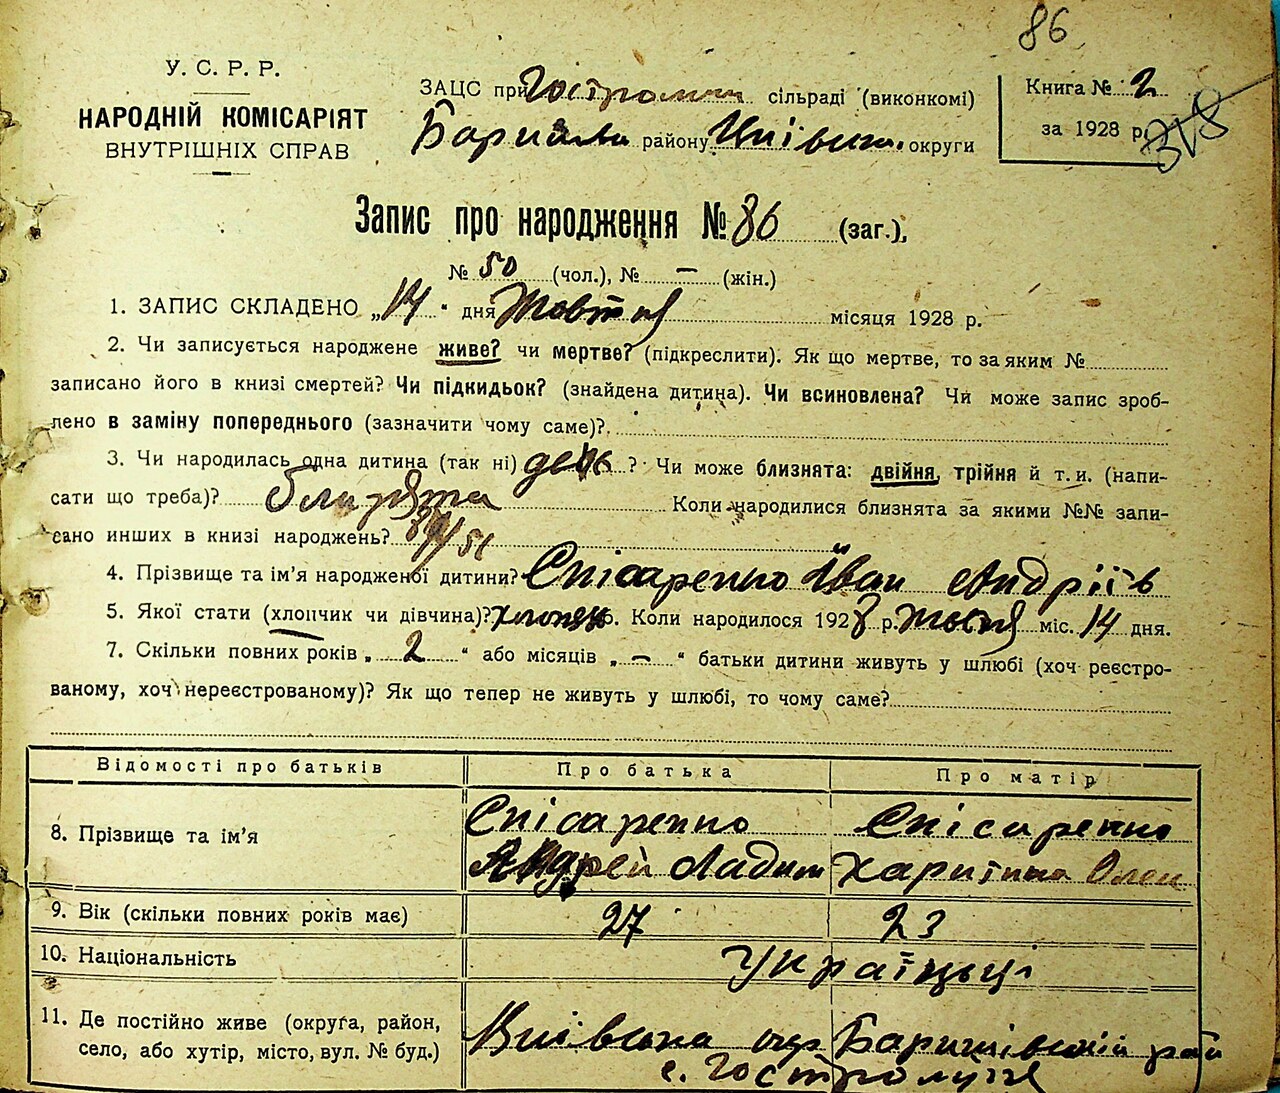 86
У. С. Р. Р.
НАРОДНІЙ КОМІСАРІЯТ
ВНУТРІШНІХ СПРАВ
ЗАЦС при сільраді (виконкомі)
району округи
Книга № 2
за 1928 р.
318
Запис про народження № 86 (заг.),
№ 50 (чол.), № — (жін.)
1. ЗАПИС СКЛАДЕНО „14" дня Жовтня місяця 1928 р.
2. Чи записується народжене живе? чи мертве? (підкреслити). Як що мертве, то за яким №
записано його в книзі смертей? Чи підкидьок? (знайдена дитина). Чи всиновлена? Чи може запис зроб-
лено в заміну попереднього (зазначити чому саме)?
3. Чи народилась одна дитина (так ні) ? Чи може близнята: двійня, трійня й т. и. (напи-
сати що треба)? близнята Коли народилися близнята за якими №№ запи-
сано инших в книзі народжень?
4. Прізвище та ім'я народженої дитини? Слісаренко Іван Андріїв
5. Якої стати (хлопчик чи дівчина)? хлопець. Коли народилося 1928 р. Жовтня міс. 14 дня.
7. Скільки повних років „ 2 " або місяців „ — " батьки дитини живуть у шлюбі (хоч реєстро-
ваному, хоч нереєстрованому)? Як що тепер не живуть у шлюбі, то чому саме?
Відомості про батьків Про батька Про матір
8. Прізвище та ім'я Слісаренко Слісаренко
Андрей Харитина
9. Вік (скільки повних років має) 27 23
10. Національність Українці
11. Де постійно живе (округа, район, Київська окр Баришівський рай
село, або хутір, місто, вул. № буд.) с. Гостролуччя